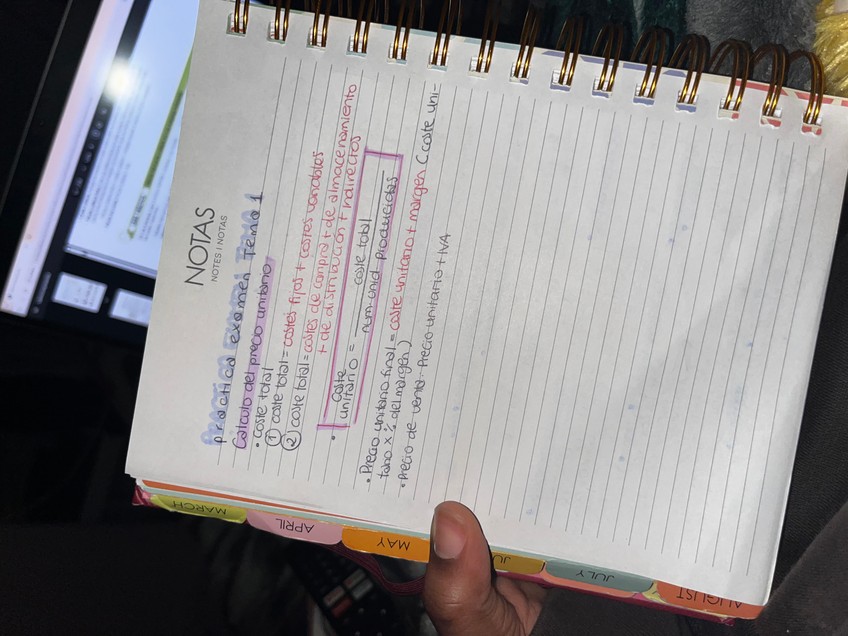 NOTAS
NOTES | NOTAS
práctica examen Tema 1
Calculo del precio unitario
• Coste total
① coste total = costes fijos + costes variables
② coste total = costes de compra + de almacenamiento
+ de distribución + indirectos
• coste unitario = coste total / num. unid. producidas
• Precio unitario final = coste unitario + margen (coste uni-
tario x % del margen)
• Precio de venta = Precio unitario + IVA
MARCH
APRIL
MAY
JULY
AUGUST